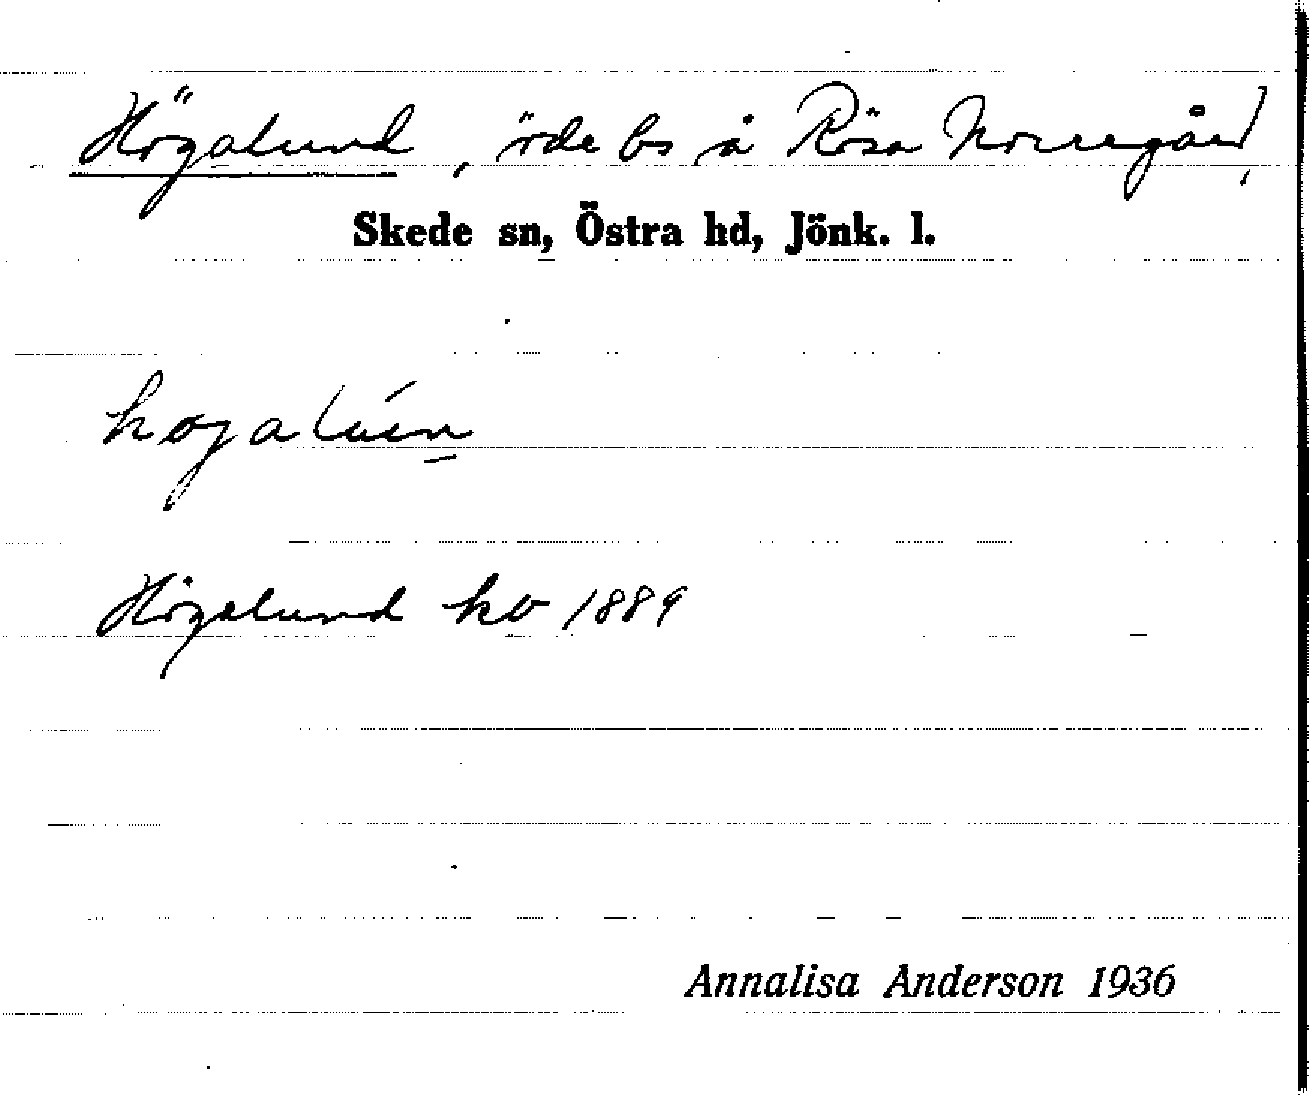 Högalund, öde bs å Rösa Norregård,
Skede sn, Östra hd, Jönk. l.
Högalund kb 1889
Annalisa Anderson 1936